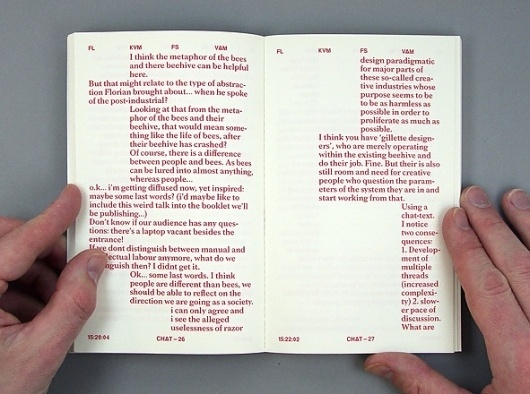 FL KVM FS V&M
I think the metaphor of the bees
and there beehive can be helpful
here.
But that might relate to the type of abstrac-
tion Florian brought about... when he spoke
of the post-industrial?
Looking at that from the meta-
phor of the bees and their
beehive, that would mean some-
thing like the life of bees, after
their beehive has crashed?
Of course, there is a difference
between people and bees. As bees
can be lured into almost anything,
whereas people...
o.k... i'm getting diffused now, yet inspired:
maybe some last words? (i'd maybe like to
include this weird talk into the booklet we'll
be publishing...)
Don't know if our audience has any ques-
tions: there's a laptop vacant besides the
entrance!
If we dont distinguish between manual and
lectual labour anymore, what do we
nguish then? I didnt get it.
Ok... some last words. I think
people are different than bees, we
should be able to reflect on the
direction we are going as a society.
i can only agree and
i see the alleged
uselessness of razor
15:20:04 CHAT – 26
FL KVM FS V&M
design paradigmatic
for major parts of
these so-called crea-
tive industries whose
purpose seems to be
to be as harmless as
possible in order to
proliferate as much as
possible.
I think you have 'gillette design-
ers', who are merely operating
within the existing beehive and
do their job. Fine. But their is also
still room and need for creative
people who question the param-
eters of the system they are in and
start working from that.
Using a
chat-text.
I notice
two conse-
quences:
1. Develop-
ment of
multiple
threads
(increased
complexi-
ty) 2. slow-
er pace of
discussion.
What are
15:22:02 CHAT – 27